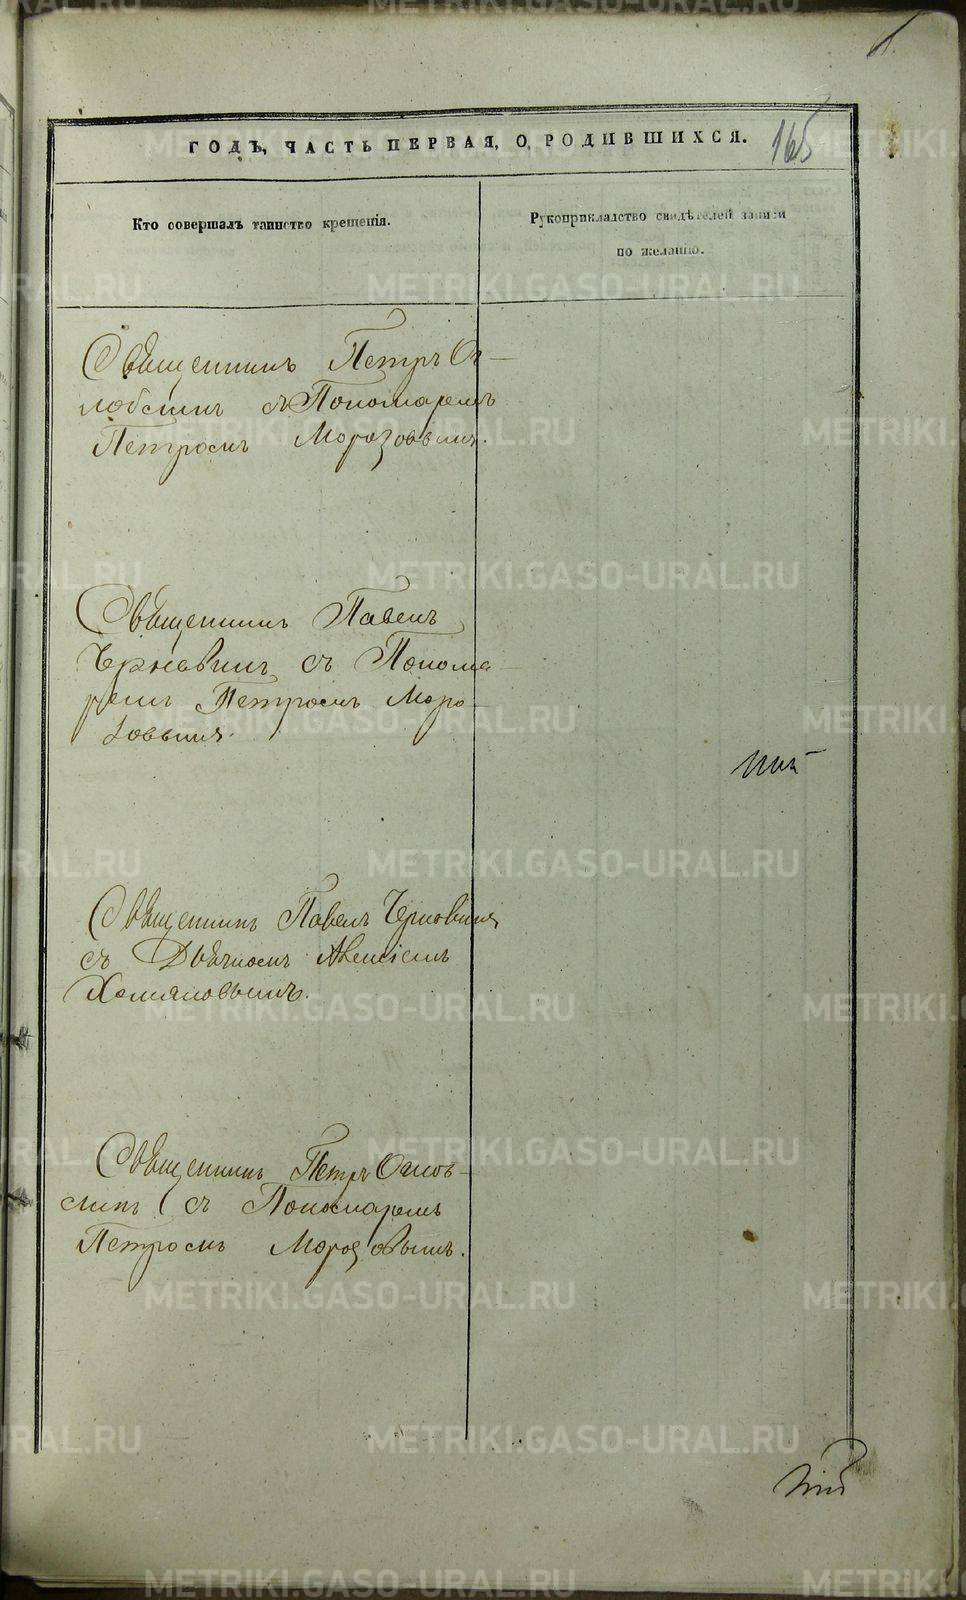 165
ГОДЪ, ЧАСТЬ ПЕРВАЯ, О РОДИВШИХСЯ.
Кто совершалъ таинство крещенія.
Рукоприкладство свидѣтелей записи
по желанію.
Священникъ Петръ
съ Пономаремъ
Петромъ Морозовымъ.
Священникъ Павелъ
Чернавинъ съ Понома-
ремъ Петромъ Моро-
зовымъ.
Священникъ Павелъ Чернавинъ
съ Дьячкомъ Алексіемъ
Хомяковымъ.
Священникъ Петръ
съ Пономаремъ
Петромъ Морозовымъ.
METRIKI.GASO-URAL.RU